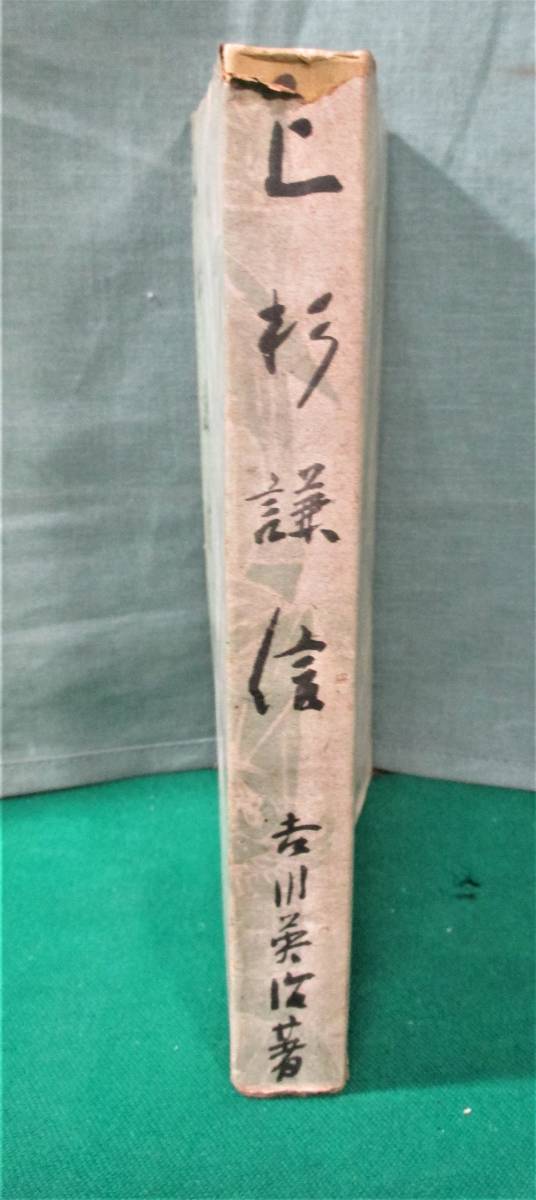 上杉謙信
吉川英治著